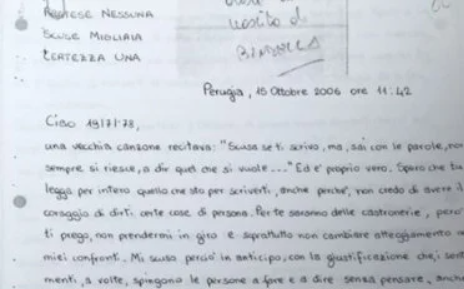 NESSUNA
SCUSE MIGLIAIA
CERTEZZA UNA
Perugia, 15 Ottobre 2006 ore 11:42
Ciao 19/71/78,
una vecchia canzone recitava: "Scusa se ti scrivo, ma, sai con le parole, non
sempre si riesce, a dir quel che si vuole..." Ed e' proprio vero. Spero che tu
legga per intero quello che sto per scriverti, anche perche', non credo di avere il
coraggio di dirti certe cose di persona. Per te saranno delle castronerie, pero'
ti prego, non prendermi in giro e soprattutto non cambiare atteggiamento
miei confronti. Mi scuso percio' in anticipo, con la giustificazione che, i senti
menti, a volte, spingono le persone a fare e a dire senza pensare, anche